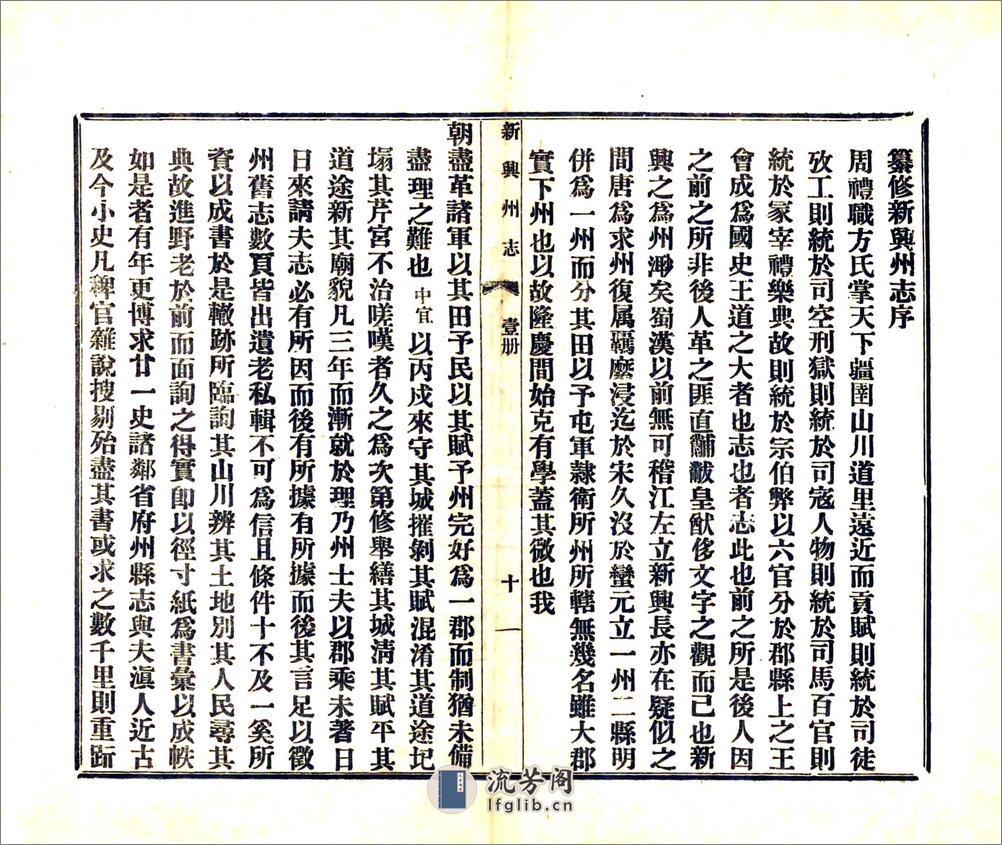 纂修新興州志序
周禮職方氏掌天下疆圉山川道里遠近而貢賦則統於司徒
攷工則統於司空刑獄則統於司寇人物則統於司馬百官則
統於冢宰禮樂典故則統於宗伯弊以六官分於郡縣上之王
會成爲國史王道之大者也志也者志此也前之所是後人因
之前之所非後人革之匪直黼黻皇猷侈文字之觀而已也新
興之爲州渺矣蜀漢以前無可稽江左立新興長亦在疑似之
間唐爲求州復属羈縻浸迄於宋久沒於蠻元立一州二縣明
併爲一州而分其田以予屯軍隷衛所州所轄無幾名雖大郡
實下州也以故隆慶間始克有學蓋其微也我
新興州志
壹册
十一
朝盡革諸軍以其田予民以其賦予州完好爲一郡而制猶未備
盡理之難也中宜以丙戍來守其城摧剝其賦混淆其道途圮
塌其芹宮不治嗟嘆者久之爲次第修舉繕其城淸其賦平其
道途新其廟貌凡三年而漸就於理乃州士夫以郡乘未著日
日來請夫志必有所因而後有所據有所據而後其言足以徵
州舊志數頁皆出遺老私輯不可爲信且條件十不及一奚所
資以成書於是轍跡所臨詢其山川辨其土地別其人民尋其
典故進野老於前而面詢之得實卽以徑寸紙爲書彙以成帙
如是者有年更博求廿一史諸鄰省府州縣志與夫滇人近古
及今小史凡稗官雜說搜剔殆盡其書或求之數千里則重趼
流芳阁
lfglib.cn